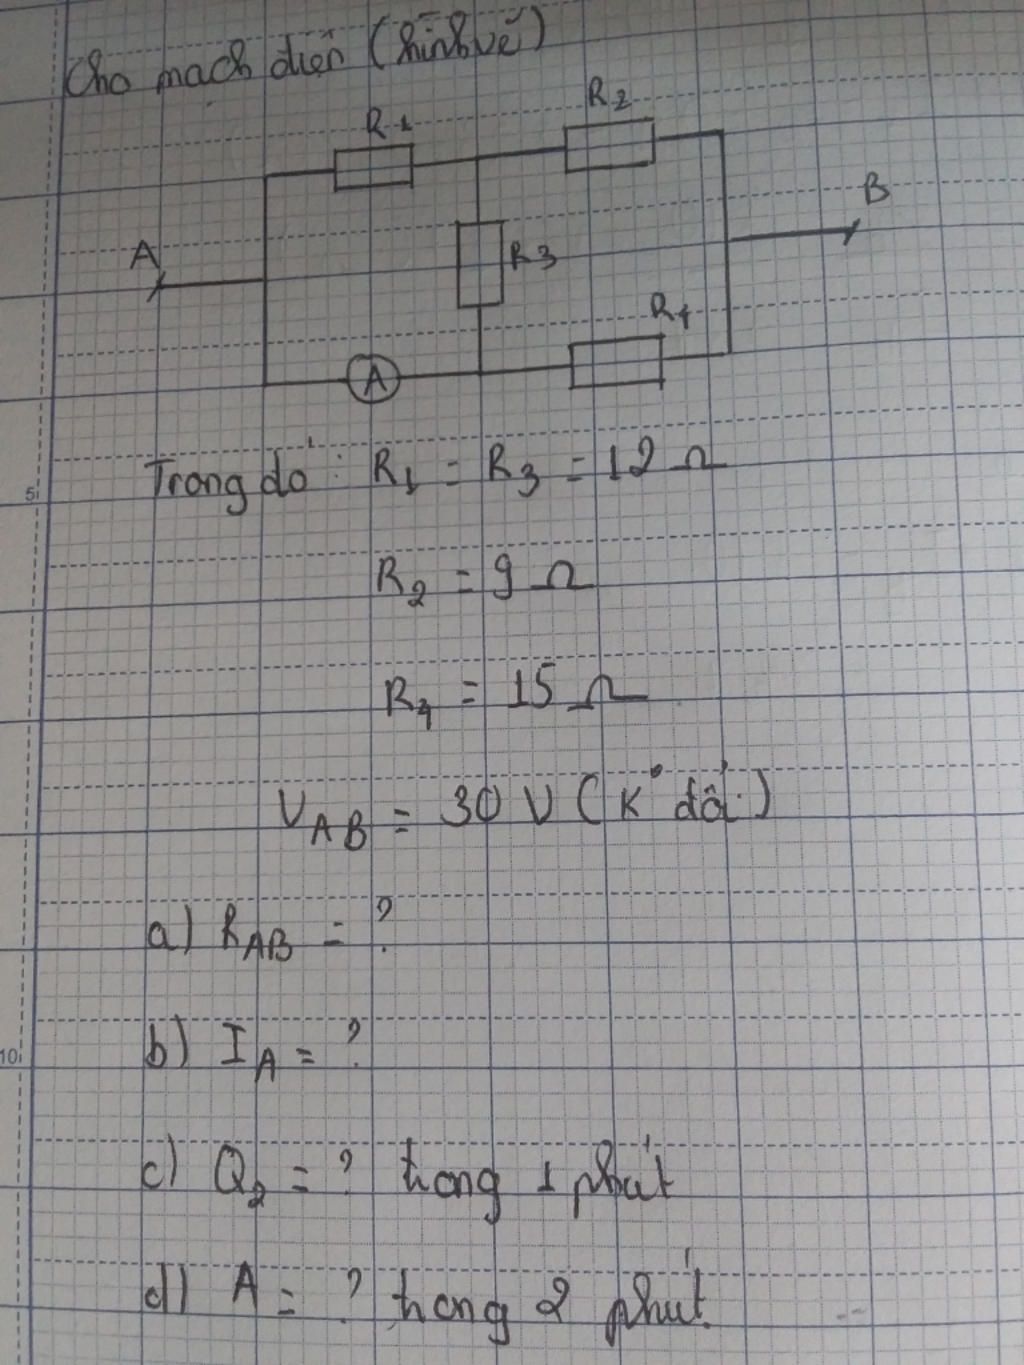 Cho mạch điện (hình vẽ)
R1
R2
A
B
R3
R4
A
Trong đó: R1 = R3 = 12 Ω
R2 = 9 Ω
R4 = 15 Ω
UAB = 30 V (K° đổi)
a) RAB = ?
b) IA = ?
c) Q2 = ? trong 1 phút
d) A = ? trong 2 phút.
5
10